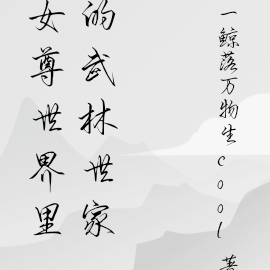 女尊世界里
的武林世家
一鲸落万物生cool 著